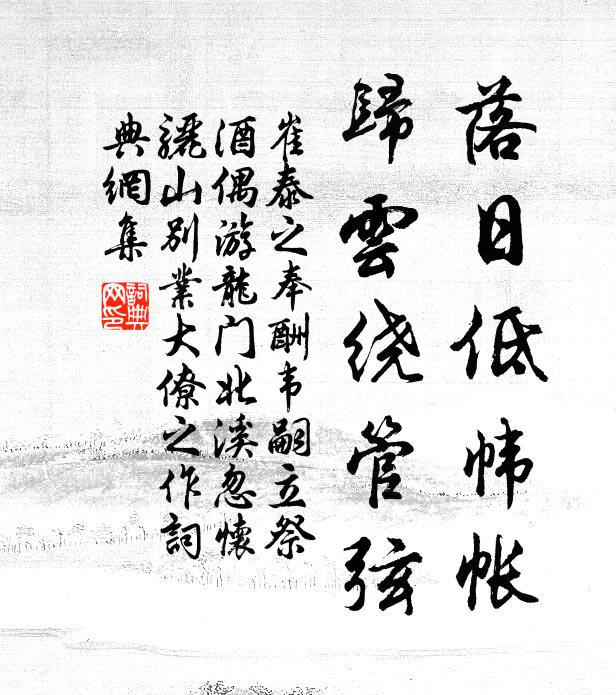 落日低帏帐
歸雲绕管弦
崔泰之奉酬韦嗣立祭
酒偶游龍门北溪忽懷
驪山别業大僚之作詞
典網集
詞典
网印